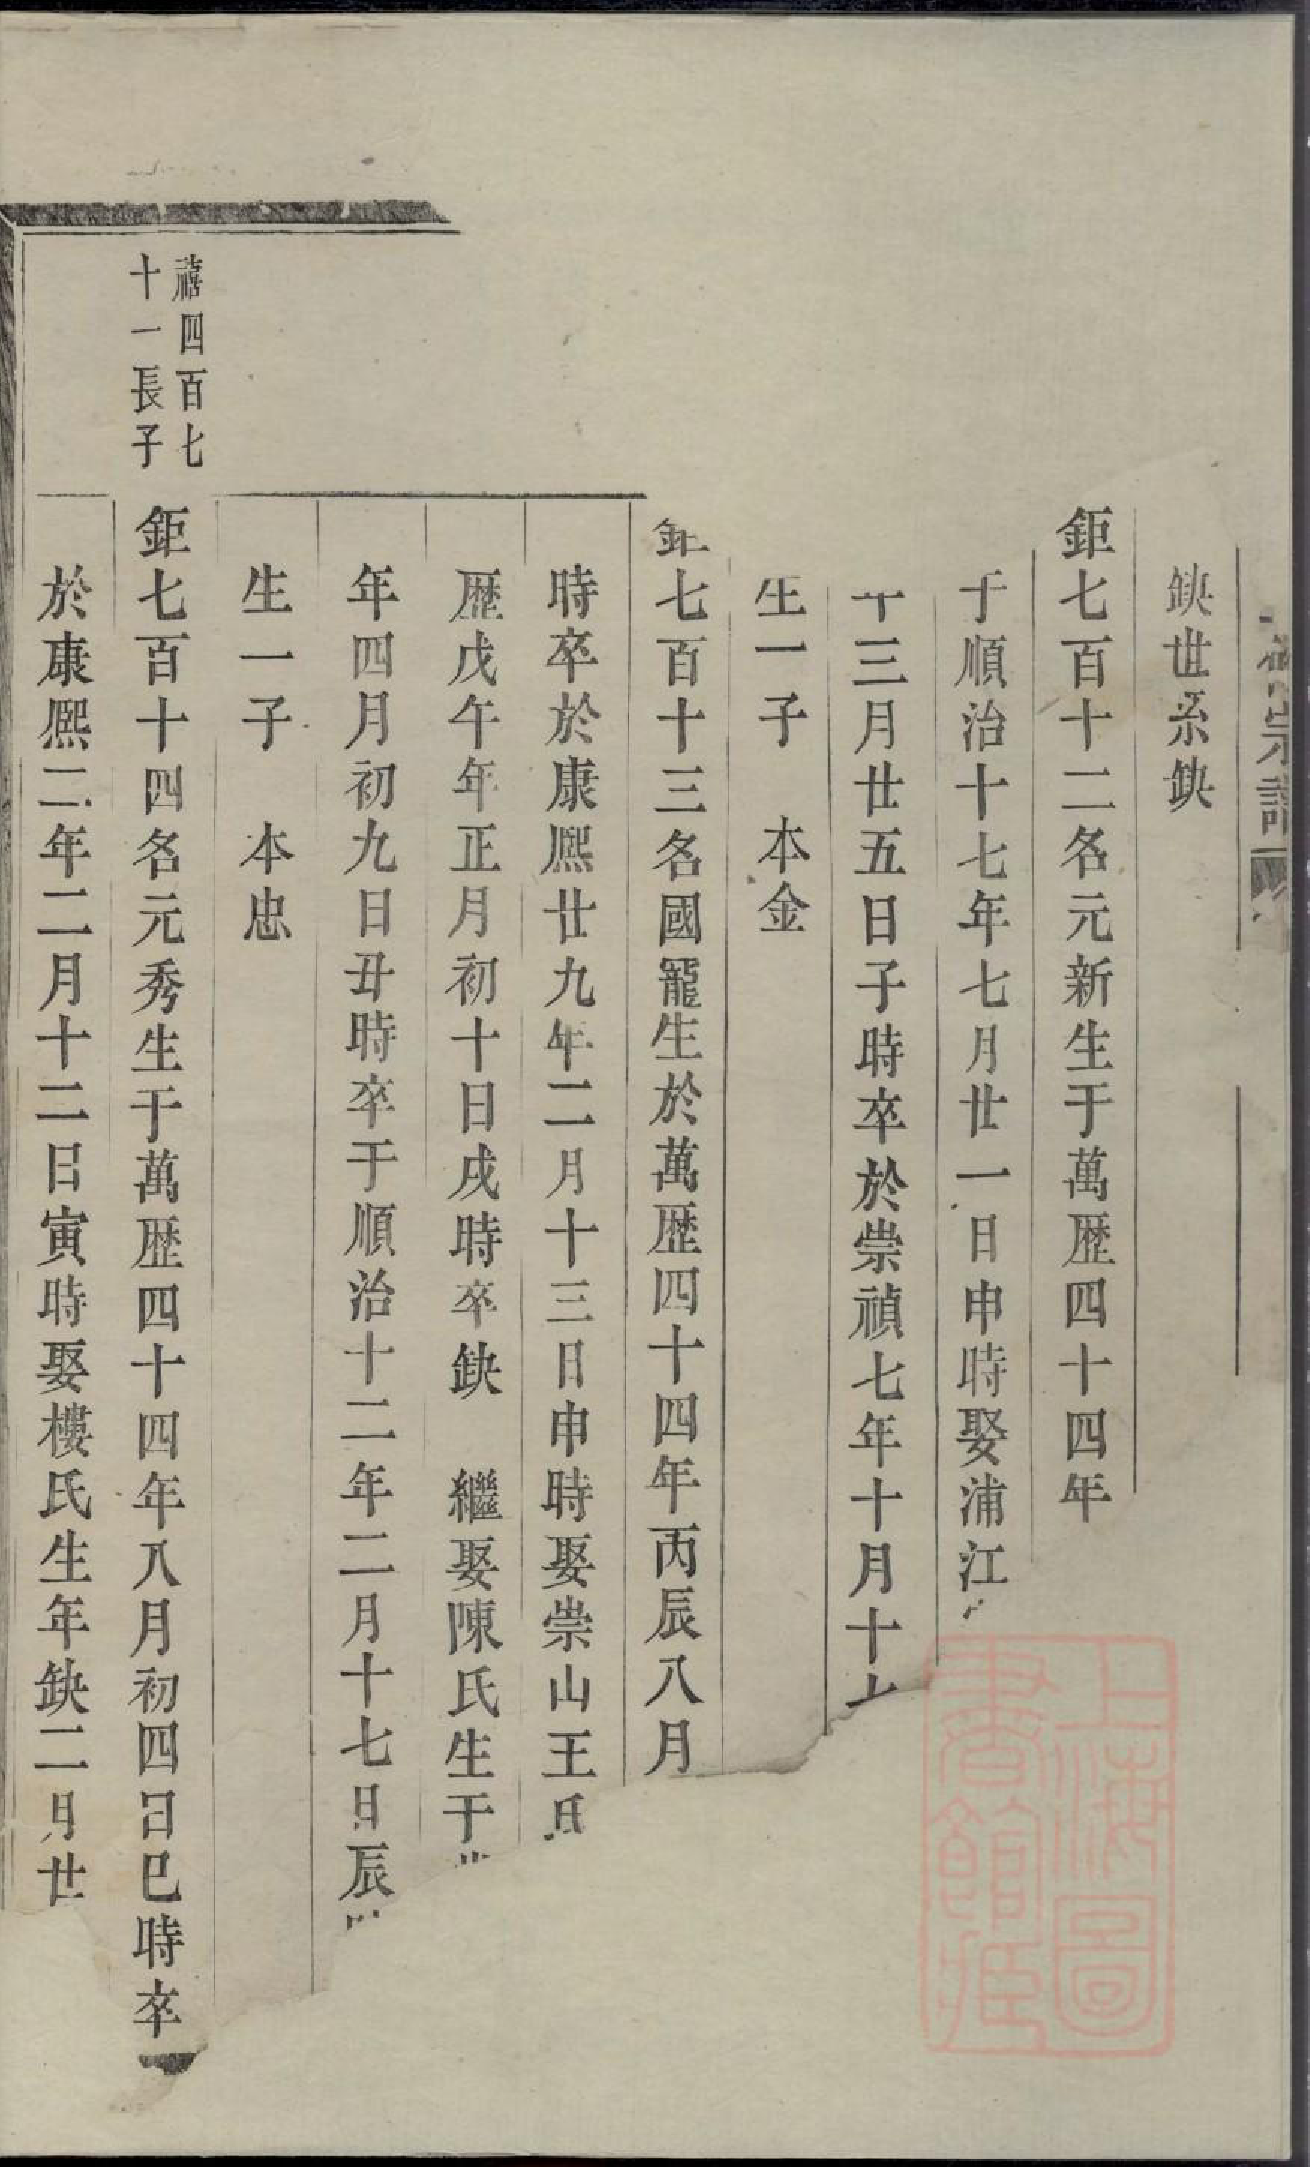 宗譜
鈌世系鈌
鉅七百十二名元新生于萬歷四十四年
于順治十七年七月廿一日申時娶浦江
十三月廿五日子時卒於崇禎七年十月十
生一子　本金
鉅七百十三名國寵生於萬歷四十四年丙辰八月
時卒於康熈廿九年二月十三日申時娶崇山王氏
歷戊午年正月初十日戌時卒鈌　繼娶陳氏生于
年四月初九日丑時卒于順治十二年二月十七日辰
生一子　本忠
禧四百七
十一長子
鉅七百十四名元秀生于萬歷四十四年八月初四日巳時卒
於康熈二年二月十二日寅時娶樓氏生年鈌二月廿
上海圖
書館藏